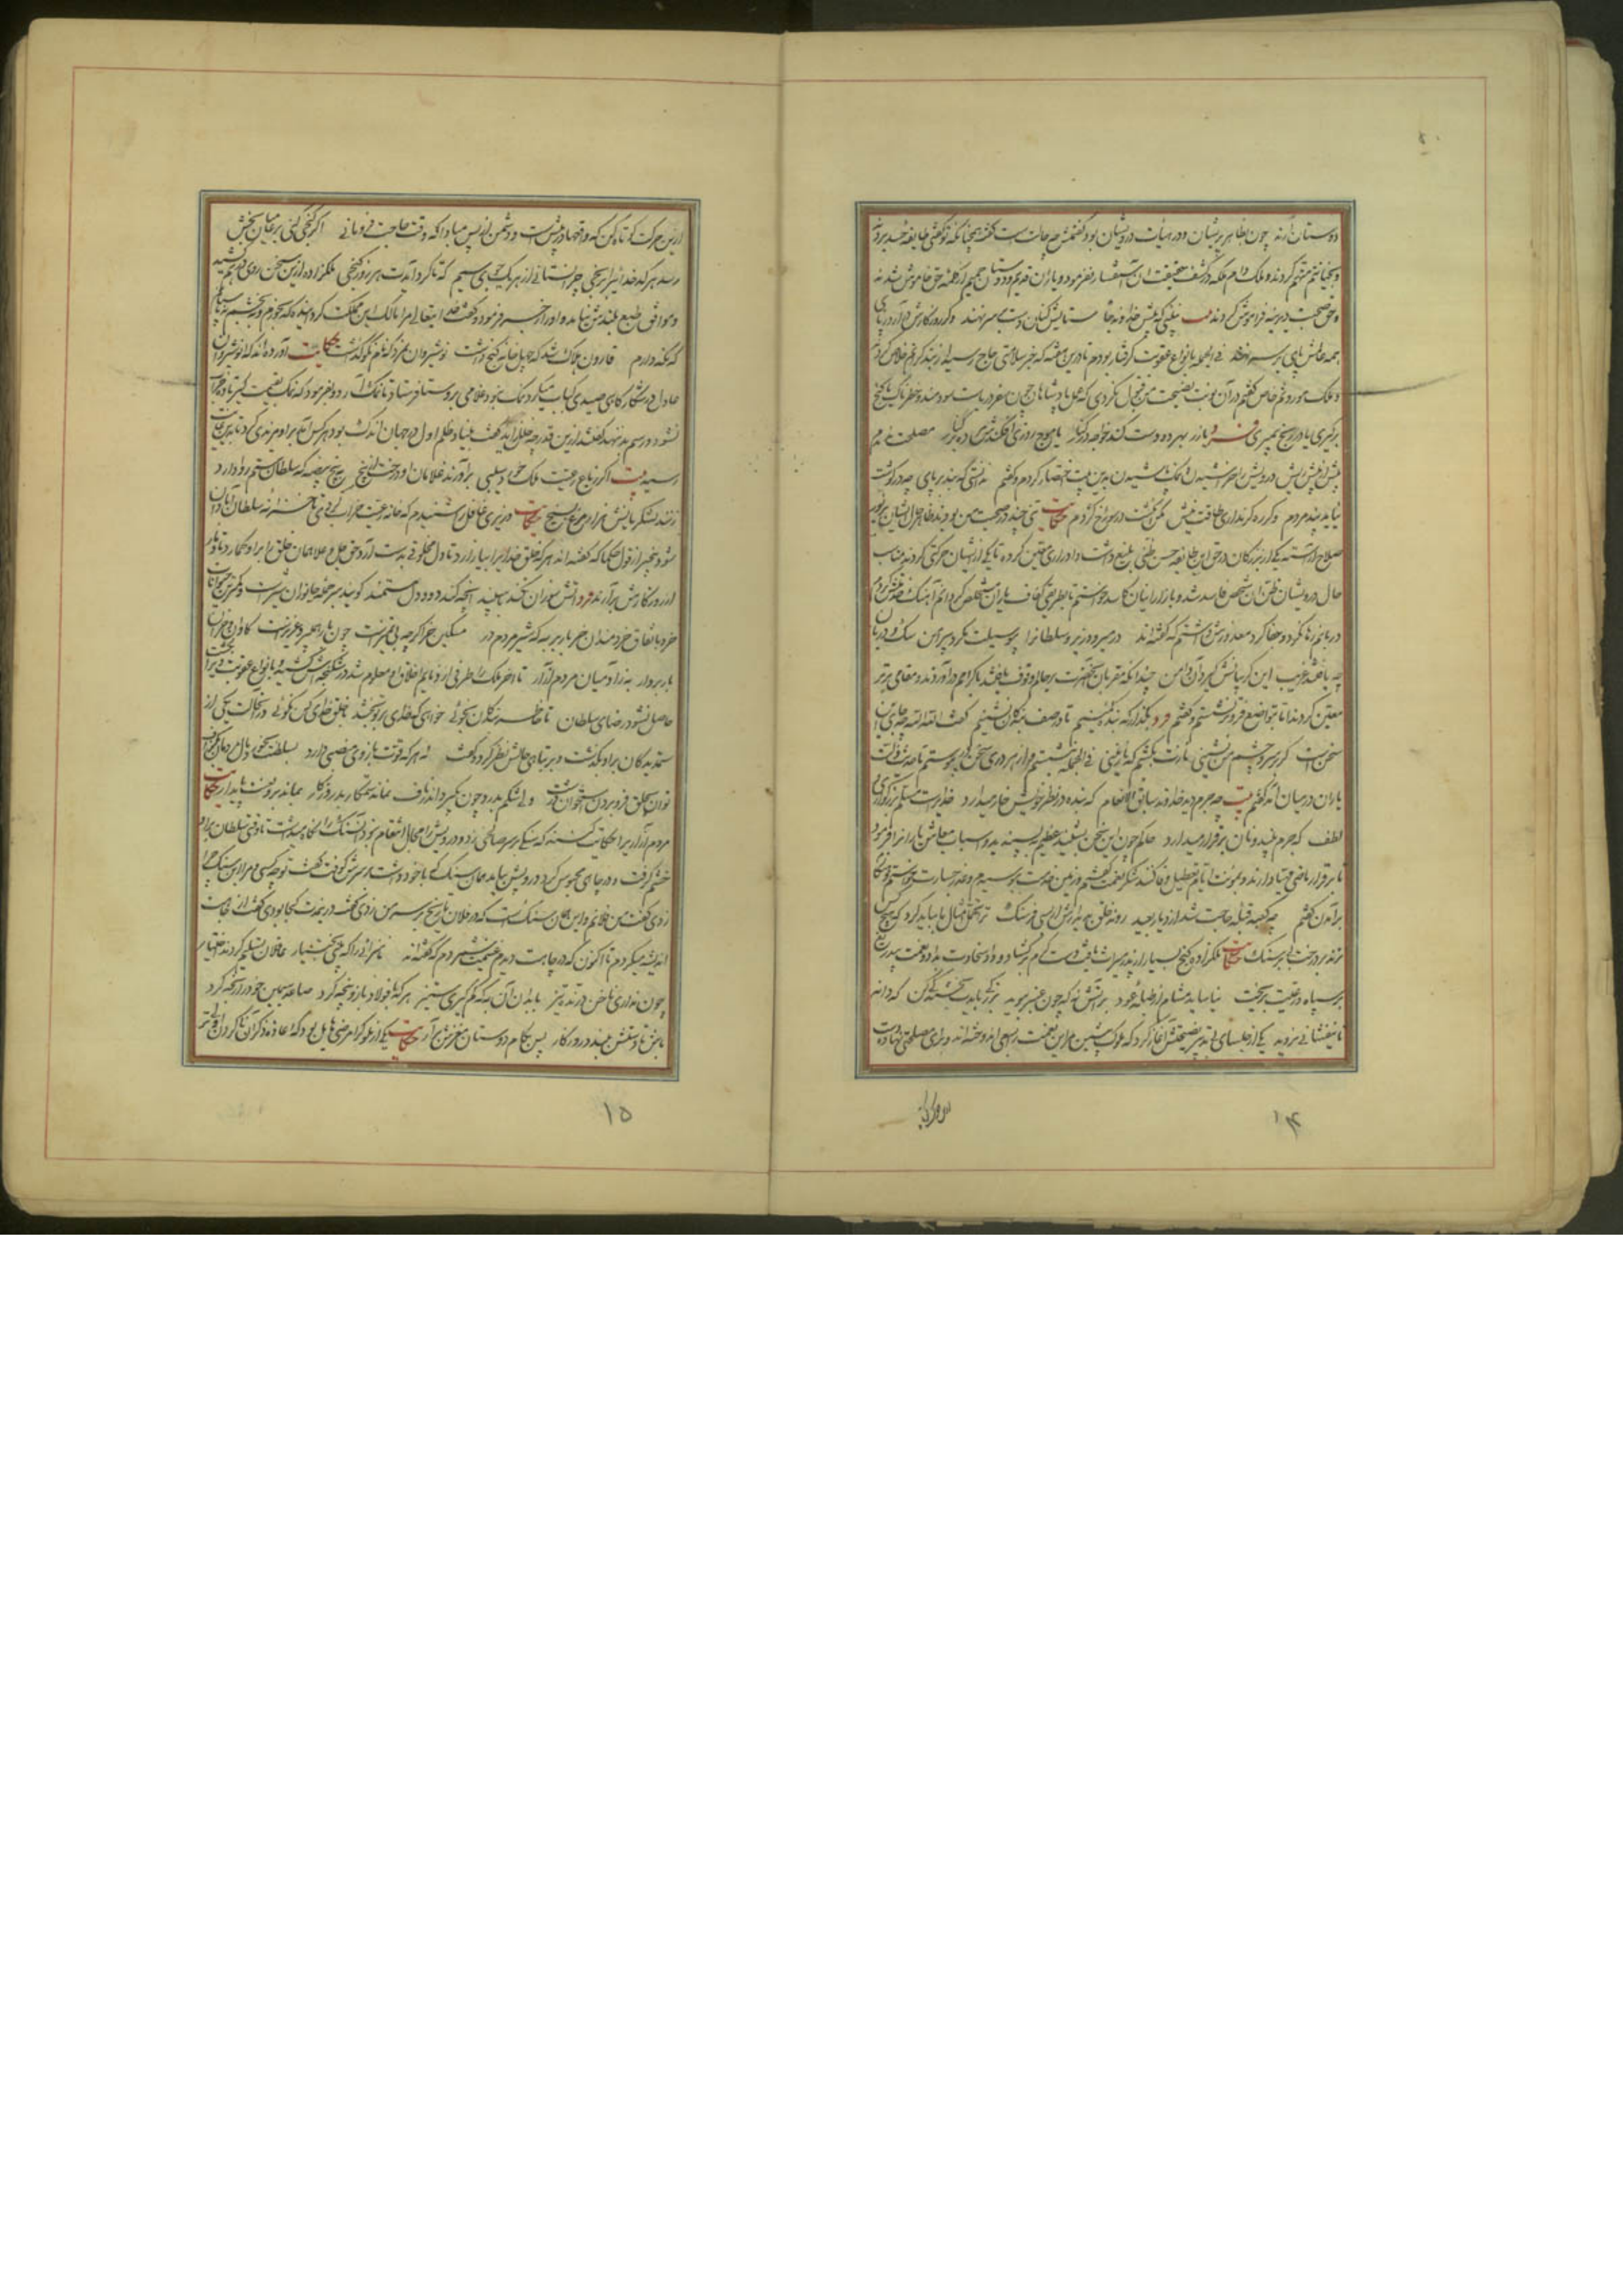 دوستان آرند چون بظاهر پریشان و در هیات درویشان بود گفتمش چه حالت است گفت همچنانکه تو گفتی طایفه حسد بردند
و بخیانتم متهم کردند و ملک دام ملکه در کشف حقیقت آن استقسار نفرمود و یاران قدیم و دوستان حمیم از کلمه حق خاموش شدند
و حق صحبت دیرینه فراموش کردند بیت نبینی که پیش خداوند جاه ستایش کنان دست بر سر نهند وگر روزگارش درآرد ز پای
همه عالمش پای بر سر نهند فی الجمله بانواع عقوبت گرفتار بودم تا درین هفته که خبر سلامتی حاج رسید از بند گرانم خلاص کرد
و ملک موروثم خاص گفتم در آن نوبت نصیحت من قبول نکردی که عمل پادشاهان چون سفر دریاست سودمند و خطرناک یا گنج
برگیری یا در رنج بمیری فرد یا زر بهر دو دست کند خواجه در کنار یا موج روزی افکندش مرده بر کنار مصلحت ندیدم
بیش ازین ریش درویش خراشیدن و نمک پاشیدن بدین بیت اختصار کردم و گفتم ندانستی که بینی بند بر پای چو در گوشت
نیاید پند مردم دگر ره گر نداری طاقت نیش مکن انگشت در سوراخ کژدم حکایت تنی چند در صحبت من بودند ظاهر حال ایشان بزیور
صلاح آراسته یکی از بزرگان در حق این طایفه حسن ظنی بلیغ داشت و ادراری معین کرده تا یکی از ایشان حرکتی کرد نه مناسب
حال درویشان ظن آن شخص فاسد شد و بازار اینان کاسد خواستم تا بطریقی کفاف یاران مستخلص گردانم آهنگ خدمتش کردم
دربانم رها نکرد و جفا کرد معذورش داشتم که گفته‌اند در میر و وزیر و سلطانرا بی وسیلت مگرد پیرامن سگ و دربان
چو یافتند غریب این گریبانش گیرد آن دامن چندانکه مقربان آن حضرت بر حالم وقوف یافتند باکرام درآوردند و مقامی برتر
معین کردند اما بتواضع فروتر نشستم و گفتم فرد بگذار که بنده کمینم تا در صف بندگان نشینم گفت الله الله چه جای این
سخن است گر بر سر و چشم من نشینی نازت بکشم که نازنینی فی الجمله بنشستم و از هر دری سخن پیوستم تا حدیث زلت
یاران در میان آمد گفتم بیت چه جرم دید خداوند سابق الانعام که بنده در نظر خویش خوار میدارد خدایراست مسلم بزرگواری و
لطف که جرم بیند و نان برقرار میدارد حاکم چون این سخن بشنید عظیم بپسندید و اسباب معاش یاران فرمود
تا بر قرار ماضی مهیا دارند و مؤنت ایام تعطیل وفا کنند شکر نعمت گفتم و زمین خدمت ببوسیدم و عذر جسارت خواستم و در حال
برآمدن گفتم چو کعبه قبله حاجت شد از دیار بعید روند خلق بدیدارش از بسی فرسنگ ترا تحمل امثال ما بباید کرد که هیچکس
نزند بر درخت بی بر سنگ حکایت ملکزاده گنج بسیار از پدر میراث یافت دست کرم برگشاد و داد سخاوت بداد و نعمت بیدریغ
بر سپاه و رعیت بریخت نیاساید مشام از طبله عود بر آتش نه که چون عنبر ببوید بزرگی بایدت بخشندگی کن که دانه
تا نیفشانی نروید یکی از جلسای بی تدبیر نصیحتش آغاز کرد که ملوک پیشین مر این نعمت را بسعی اندوخته‌اند و برای مصلحتی نهاده دست
۱۴
ازین حرکت کوتاه کن که واقعها در پیش است و دشمن از پس مبادا که وقت حاجت فرومانی اگر گنجی کنی بر عامیان بخش
رسد هر کدخدائیرا برنجی چرا نستانی از هر یک جوی سیم که گرد آید ترا هر روز گنجی ملکزاده ازین سخن روی درهم کشید
و موافق طبع بلندش نیامد و او را زجر فرمود و گفت خدایتعالی مرا مالک این مملکت گردانیده که بخورم و ببخشم نه پاسبانم
که نگه دارم قارون هلاک شد که چهل خانه گنج داشت نوشیروان نمرد که نام نکو گذاشت حکایت آورده‌اند که نوشیروان
عادل در شکارگاهی صیدی کباب میکرد نمک نبود غلامی بروستا فرستاد تا نمک آرد و بفرمود که نمک بقیمت گیر تا ده خراب
نشود و رسم بد ننهند گفتند ازین قدر چه خلل زاید گفت بنیاد ظلم اول در جهان اندک بود هر کس آمد بر او مزیدی کرد تا بدین غایت
رسید بیت اگر ز باغ رعیت ملک خورد سیبی برآورند غلامان او درخت از بیخ به پنج بیضه که سلطان ستم روا دارد
زنند لشکریانش هزار مرغ بسیخ حکایت وزیری غافل را شنیدم که خانه رعیت خراب کردی تا خزانه سلطان آبادان
شود بیخبر از قول حکما که گفته‌اند هر که خلق خدایرا بیازارد تا دل مخلوقی بدست آرد حق جل و علا همان خلق را بر او گمارد تا دمار
از روزگارش برآرند فرد آتش سوزان نکند با سپند آنچه کند دود دل مستمند گویند سر جمله جانوران شیر است و کمترین جانوران
خر و باتفاق خردمندان خر باربر به که شیر مردم در مسکین خر اگرچه بی تمیز است چون بار همی‌برد عزیز است گاوان و خران
باربردار به ز آدمیان مردم آزار تا آخر ملک را طرفی از ذمایم اخلاق او معلوم شد در شکنجه‌اش کشید و بانواع عقوبت بکشت
حاصل نشود رضای سلطان تا خاطر بندگان نجوئی خواهی که خدای بر تو بخشد با خلق خدای کن نکوئی در آنحالت یکی از
ستمدیدگان بر او بگذشت و بر تباهی حالش نظر کرد و گفت نه هر که قوت بازوی منصبی دارد بسلطنت بخورد مال مردمان بگزاف
توان بحلق فرو بردن استخوان درشت ولی شکم بدرد چون بگیرد اندر ناف نماند ستمکار بدروزگار بماند برو لعنت پایدار حکایت
مردم آزاریرا حکایت کنند که سنگی بر سر صالحی زد و درویش را مجال انتقام نبود آن سنگ را نگاه میداشت تا وقتی سلطان بر او
خشم گرفت و در چاهی محبوس کرد درویش بیامد همان سنگ که با خود داشت بر سرش کوفت گفت تو چه کسی و مرا این سنگ چرا
زدی گفت من فلانم و این همان سنگ است که در فلان تاریخ بر سر من زدی گفت درین مدت کجا بودی گفت از جاهت
اندیشه میکردم تا اکنون که در چاهت دیدم غنیمت شمردم که گفته‌اند ناسزائیرا که بینی بختیار عاقلان تسلیم کردند اختیار
چون نداری ناخن درنده تیز با بدان آن به که کم گیری ستیز هر که با فولاد بازو پنجه کرد ساعد سیمین خود را رنجه کرد
باش تا دستش ببندد روزگار پس بکام دوستان مغزش برآر حکایت یکی از ملوک را مرضی هایل بود که اعاده ذکر آن ناکردن اولی‌تر
۱۵